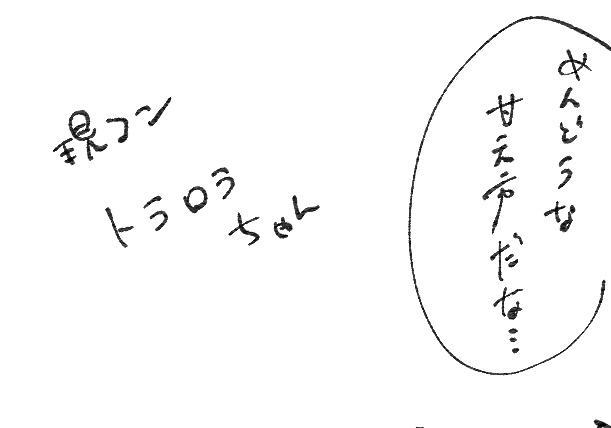 めんどうな
甘え方だな…
現コン
トラロラ
ちゃん